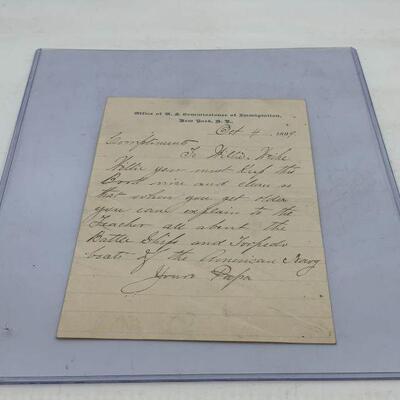 Office of U. S. Commissioner of Immigration,
New York, N. Y.,
Oct 4 1889
Compliment
To Willie
Willie you must Keep this
Book nice and clean so
that when you get older
you can explain to the
Teacher all about the
Battle Ships and Torpedo
boats of the American Navy
Yours Papa